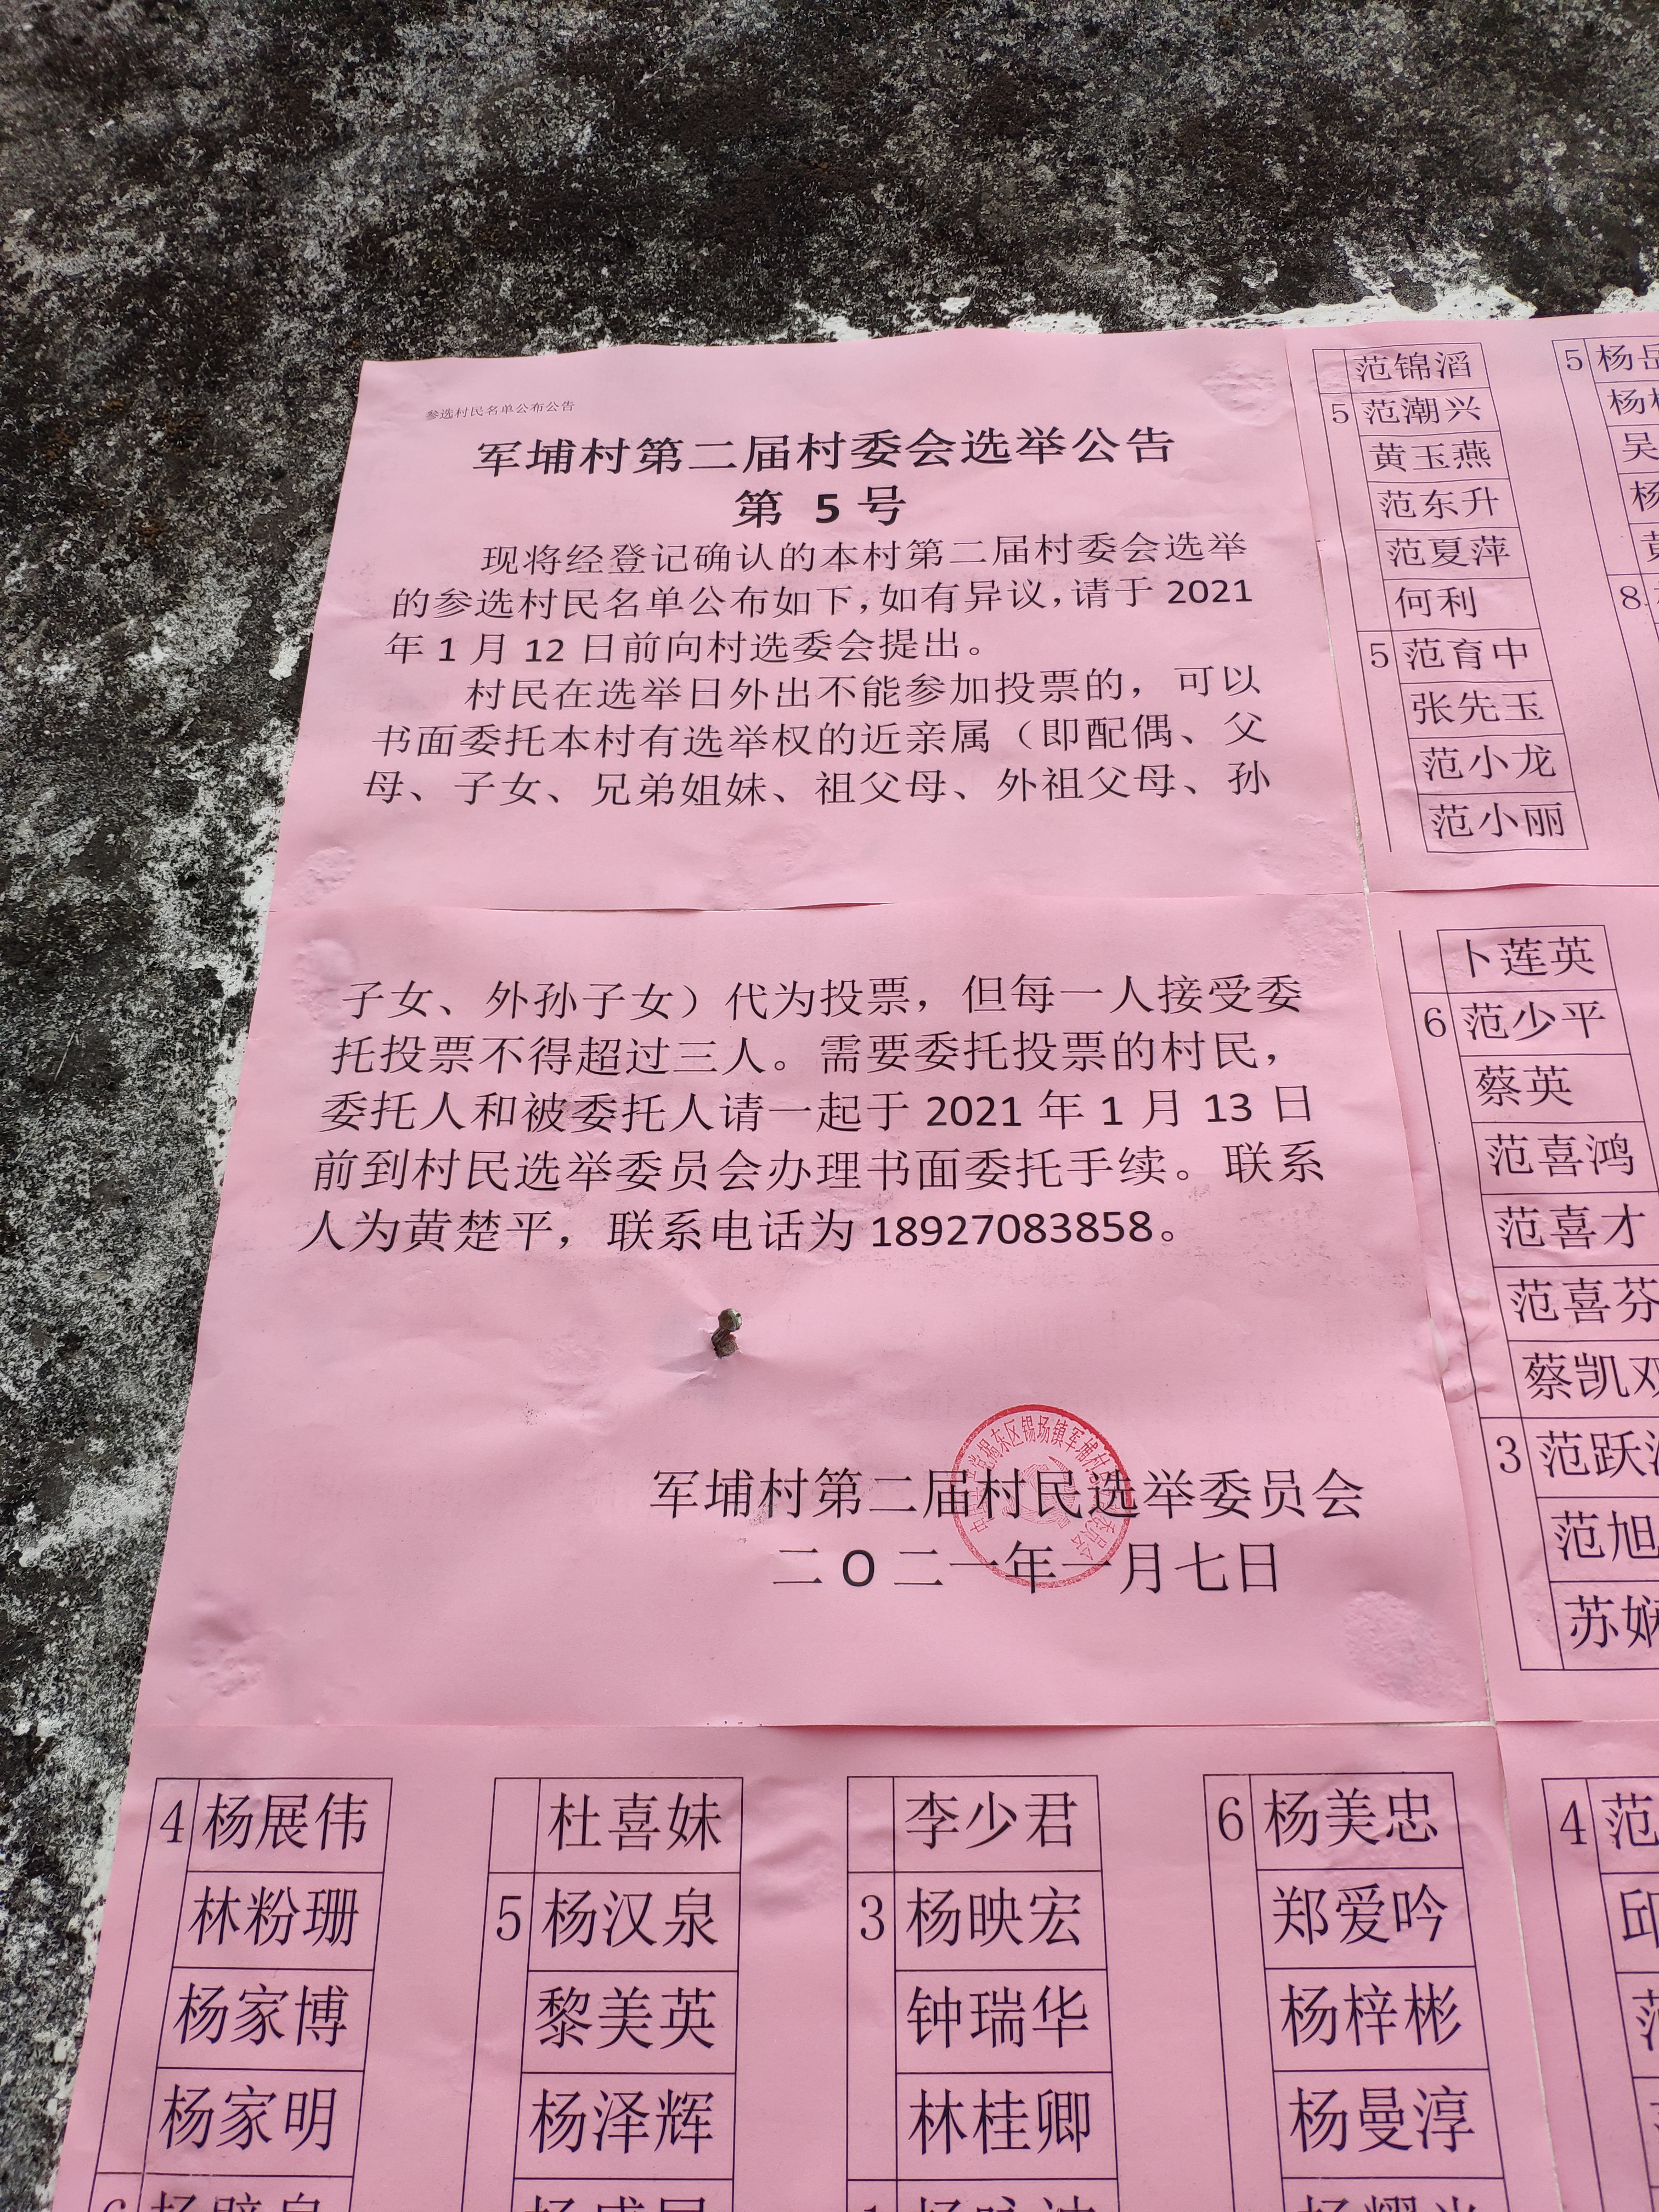 参选村民名单公布公告
军埔村第二届村委会选举公告
第 5 号
现将经登记确认的本村第二届村委会选举
的参选村民名单公布如下,如有异议,请于 2021
年 1 月 12 日前向村选委会提出。
村民在选举日外出不能参加投票的，可以
书面委托本村有选举权的近亲属（即配偶、父
母、子女、兄弟姐妹、祖父母、外祖父母、孙
子女、外孙子女）代为投票，但每一人接受委
托投票不得超过三人。需要委托投票的村民，
委托人和被委托人请一起于 2021 年 1 月 13 日
前到村民选举委员会办理书面委托手续。联系
人为黄楚平，联系电话为 18927083858。
军埔村第二届村民选举委员会
二 O 二一年一月七日
范锦滔
5 范潮兴
黄玉燕
范东升
范夏萍
何利
5 范育中
张先玉
范小龙
范小丽
5 杨
杨
吴
杨
8
卜莲英
6 范少平
蔡英
范喜鸿
范喜才
范喜芬
蔡凯双
3 范跃
范旭
苏娴
4 杨展伟
林粉珊
杨家博
杨家明
6
杜喜妹
5 杨汉泉
黎美英
杨泽辉
李少君
3 杨映宏
钟瑞华
林桂卿
6 杨美忠
郑爱吟
杨梓彬
杨曼淳
4 范
邱